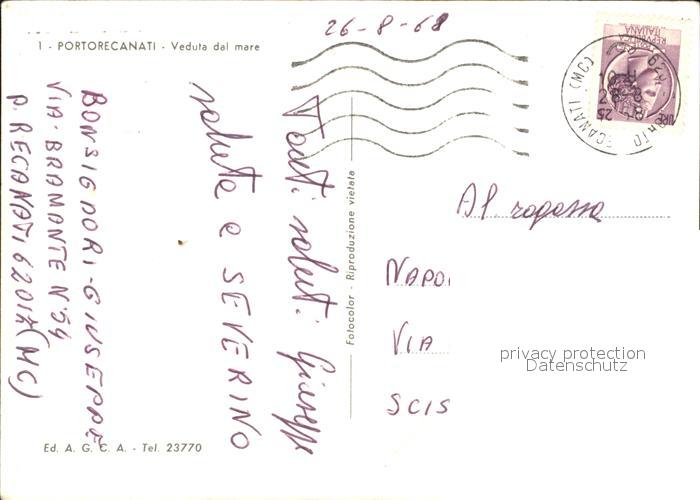 26-8-68
1 - PORTORECANATI - Veduta dal mare
Tanti saluti Giuseppe
saluta a SEVERINO
BONSIGNORI-GIUSEPPE
VIA-BRAMANTE N°54
P. RECANATI 62017 (MC)
Fotocolor - Riproduzione vietata
Al ragazzo
NAPO
VIA
SCIS
privacy protection
Datenschutz
Ed. A. G. C. A. - Tel. 23770